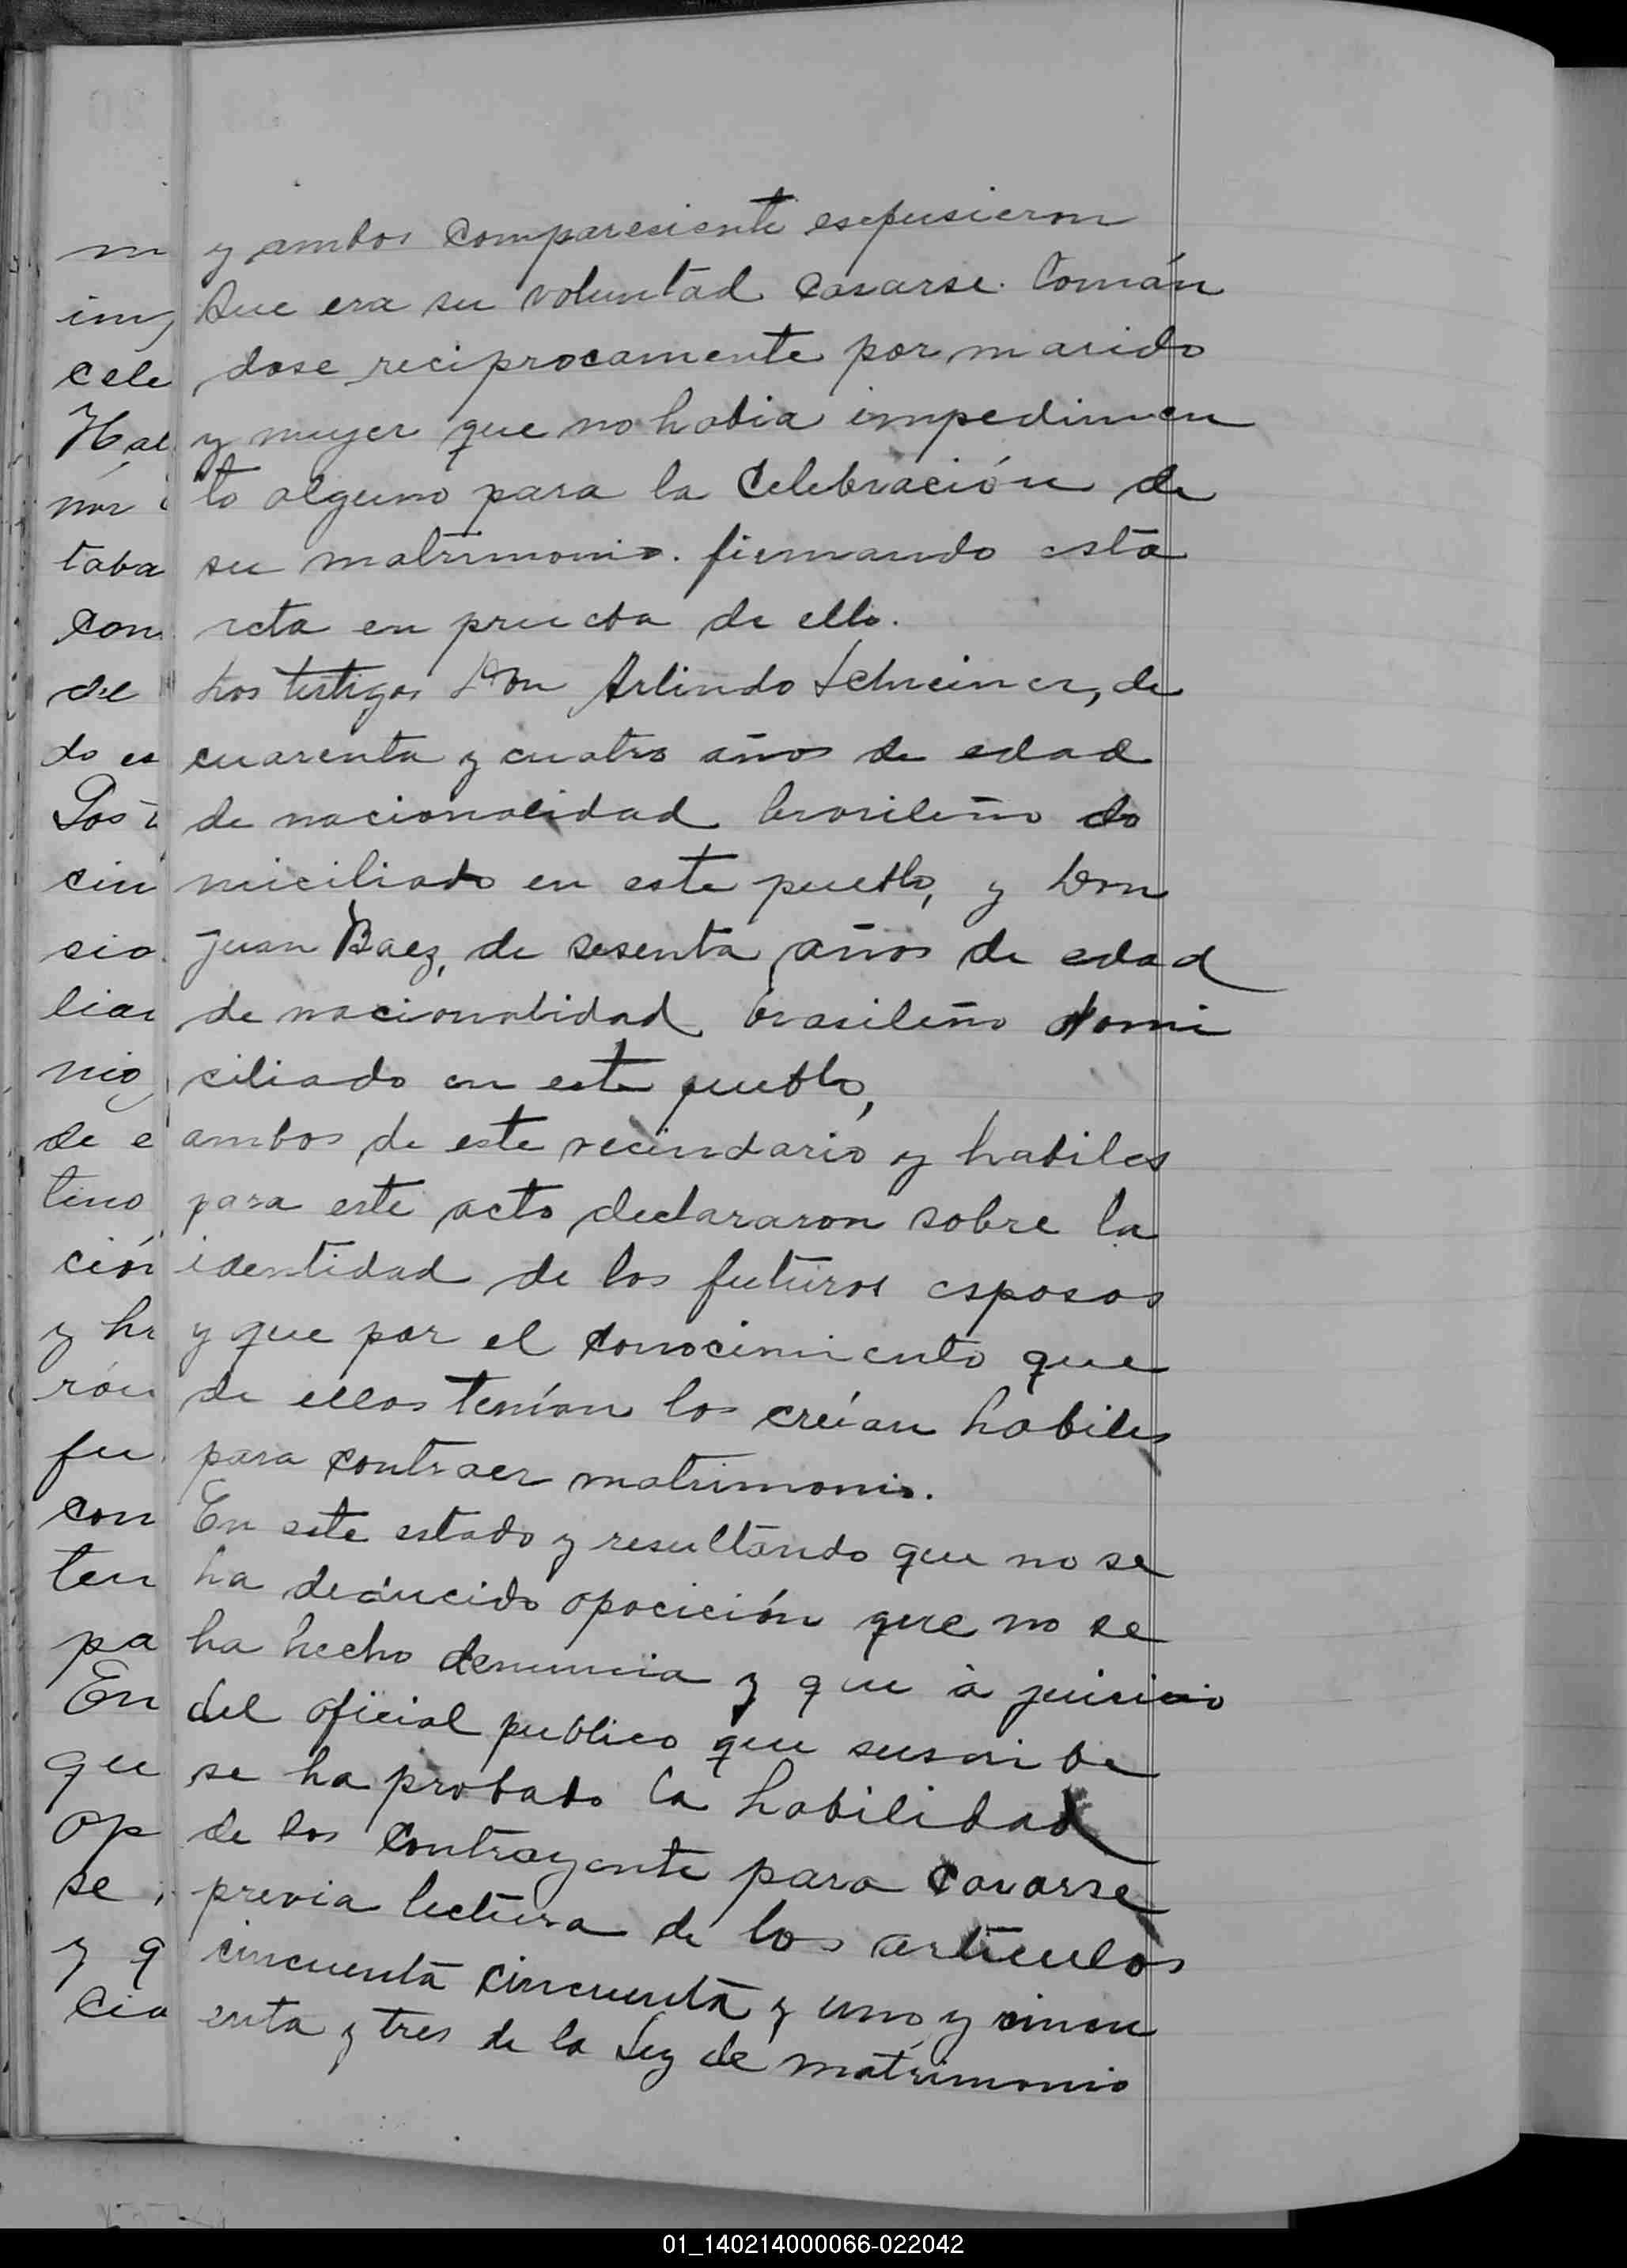 y ambos compareciente esepusieron
Que era su voluntad casarse. Tomán
dose reciprocamente por marido
y mujer que no habia impedimen
to alguno para la Celebración de
su matrimonio. firmando esta
acta en prueba de ello.
Los testigos Don Arlindo Schreiner, de
cuarenta y cuatro años de edad
de nacionalidad brasileño do
miciliado en este pueblo, y Don
Juan Baez, de sesenta años de edad
de nacionalidad brasileño domi
ciliado en este pueblo,
ambos de este vecindario y habiles
para este acto declararon sobre la
identidad de los futuros esposos
y que por el conocimiento que
de ellos tenían los creían habiles
para contraer matrimonio.
En este estado y resultando que no se
ha deducido oposición que no se
ha hecho denuncia y que à juisicio
del oficial publico que suscribe
se ha probado la habilidad
de los contrayente para casarse
previa lectura de los articulos
cincuenta cincuenta y uno y cincu
enta y tres de la Ley de matrimonio
m
im
cele
Hal
nor
taba
con
de
do es
Los t
cin
sio
lia
nio
de e
tino
ción
y ha
rón
fu
con
ten
pa
En
que
op
se
y q
cia
01_140214000066-022042